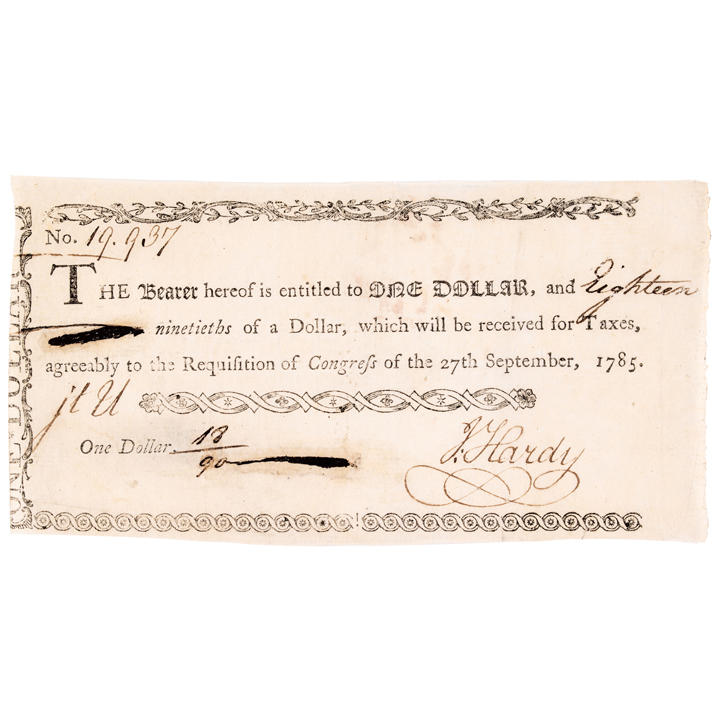 No. 19.937
THE Bearer hereof is entitled to ONE DOLLAR, and Eighteen
ninetieths of a Dollar, which will be received for Taxes,
agreeably to the Requiſition of Congreſs of the 27th September, 1785.
One Dollar 18/90
J. Hardy
ONE DOLLAR